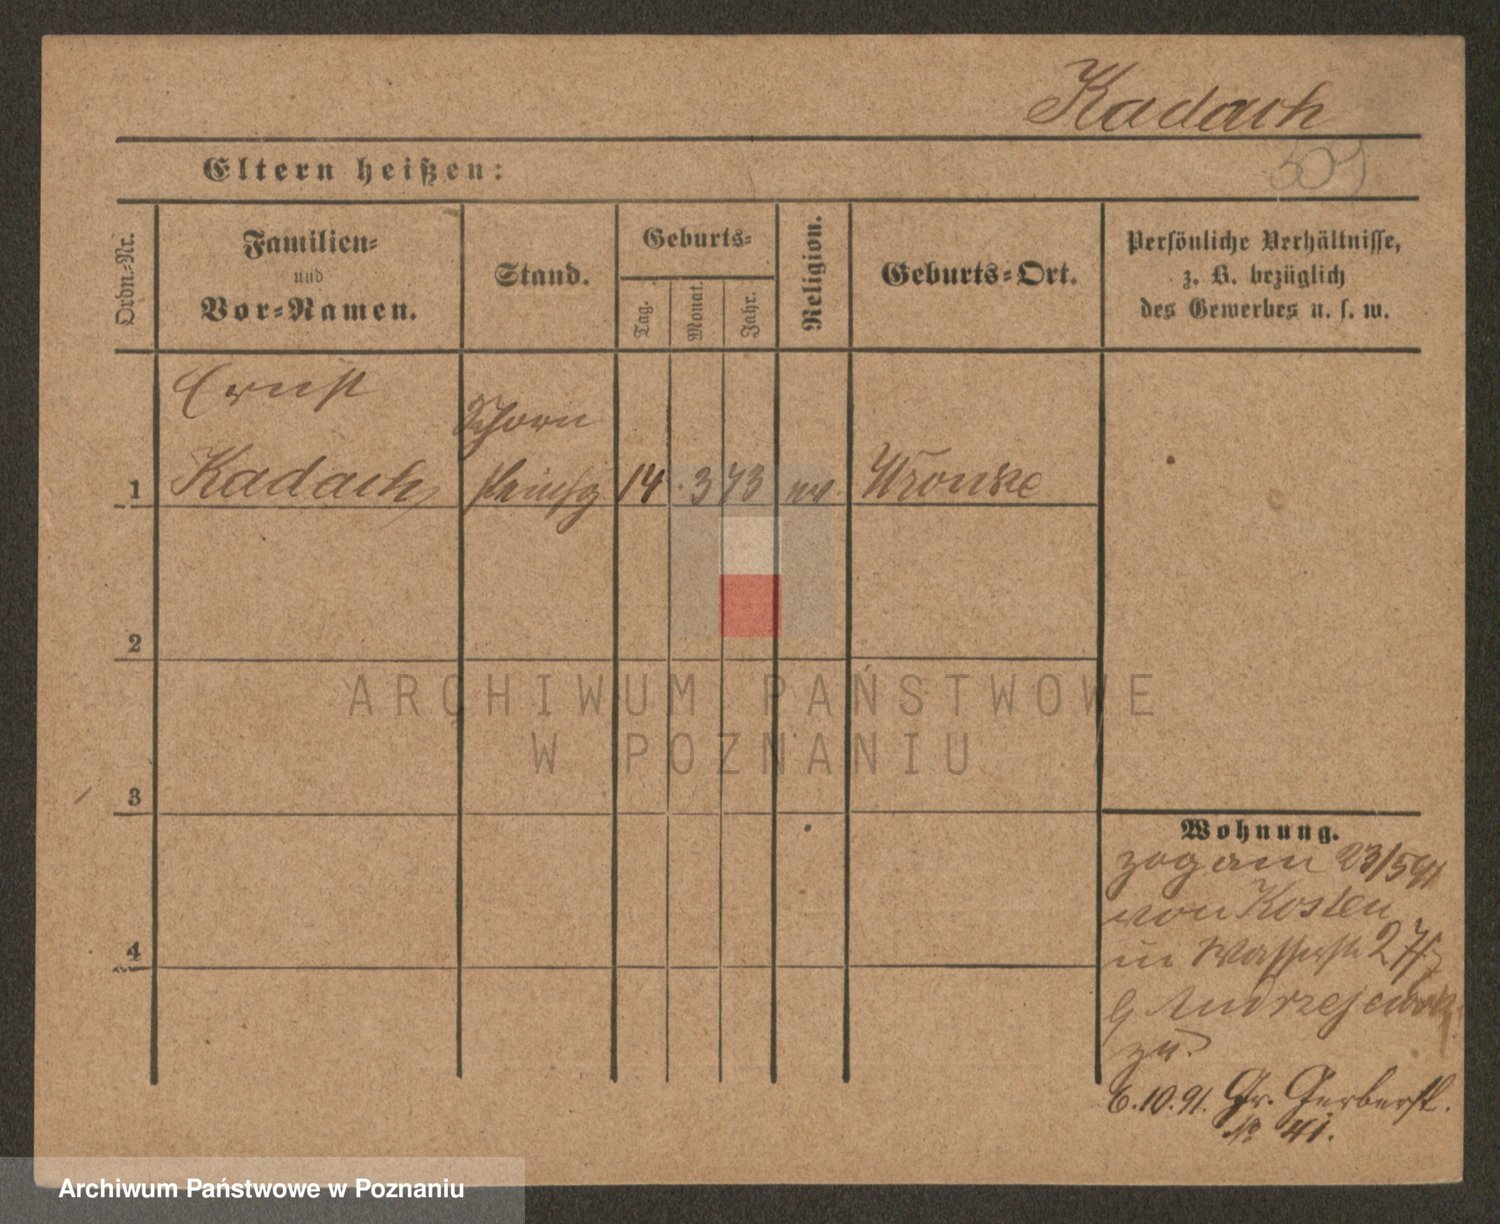 Kadach
509
Eltern heißen:
Ordn.-Nr.
Familien-
und
Vor-Namen.
Stand.
Geburts-
Tag.
Monat.
Jahr.
Religion.
Geburts-Ort.
Persönliche Verhältnisse,
z. B. bezüglich
des Gewerbes u. s. w.
Ernst
Schorn
1 Kadach steinfg 14 . 3 73 ev. Wronke
2
ARCHIWUM PAŃSTWOWE
W POZNANIU
3
Wohnung.
zog am 23/5 91
von Kosten
in Wasserstr 27
b Andrzejewski
zu.
6.10.91. Gr. Gerberst.
No 41.
4
Archiwum Państwowe w Poznaniu